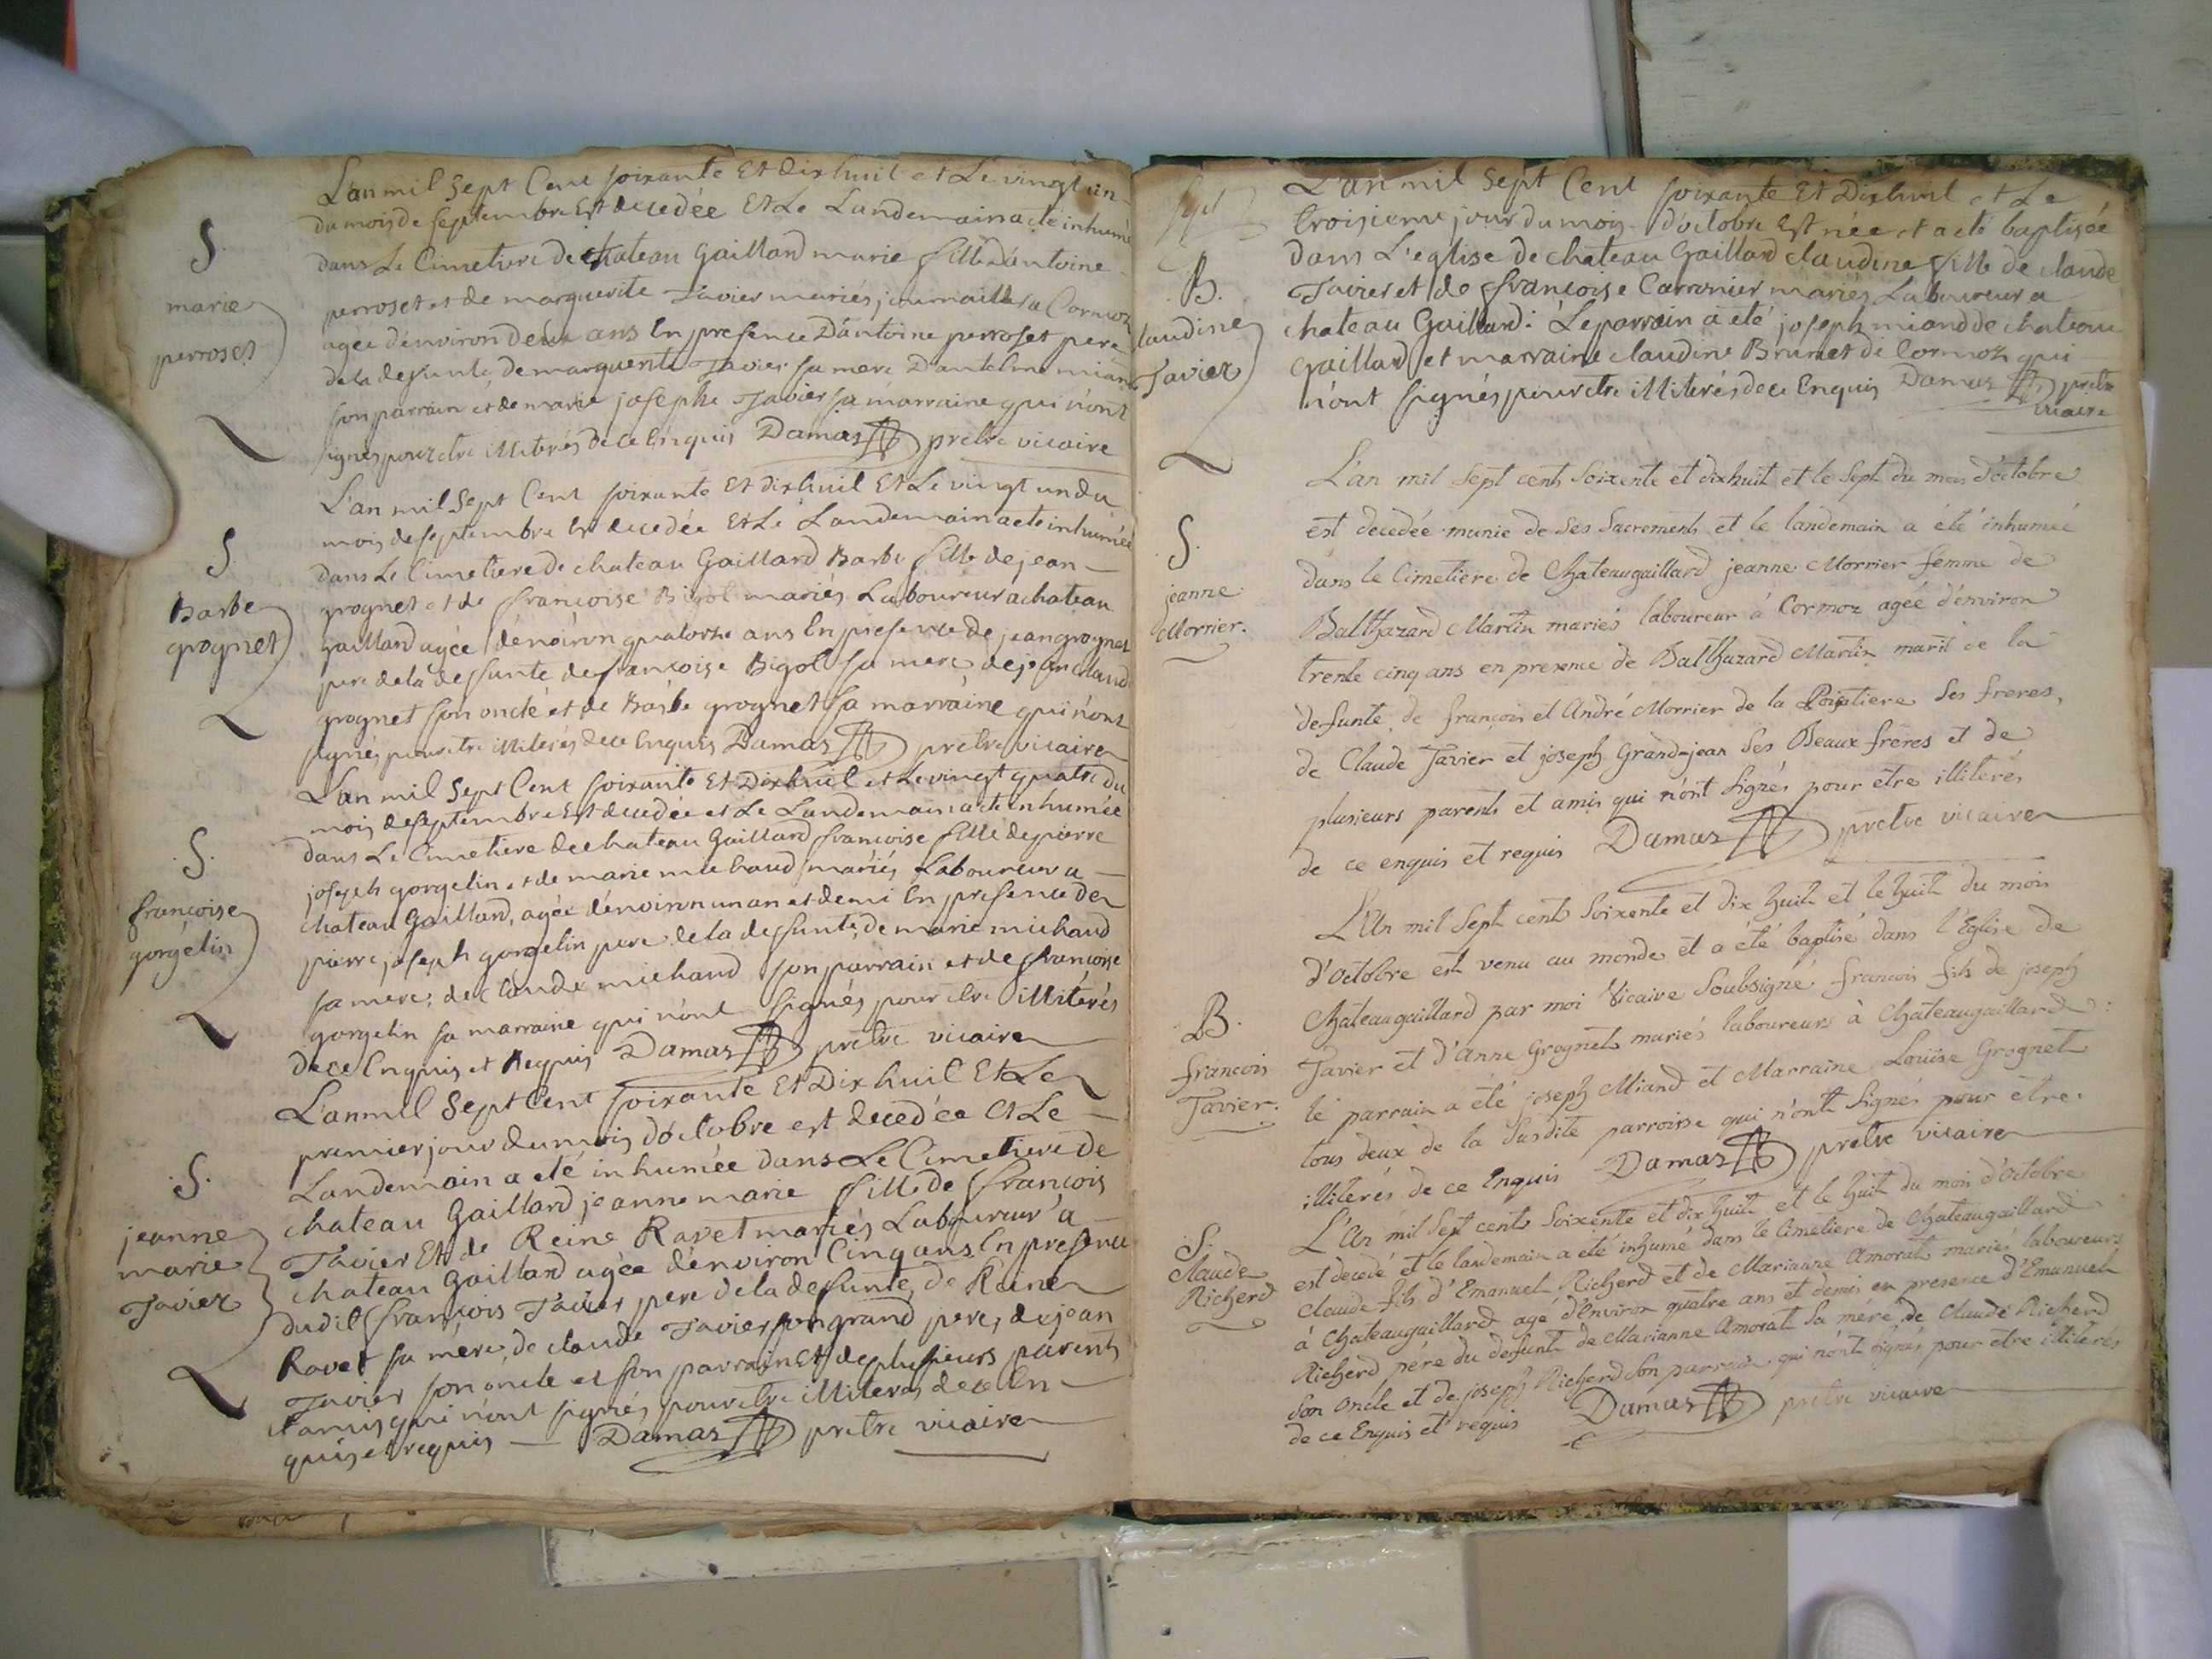 L'an mil Sept Cent soixante Et dixhuit et Le vingt un
du mois de septembre Est decedée Et Le Landemain a eté inhumé
dans Le Cimetiere de chateau Gaillard marie fille d'antoine
perroset et de marguerite Tavier mariés journailler a Cormoz
agée d'environ deux ans En presence D'antoine perroset pere
de la defunte, de marguerite Tavier sa mere D'antelme miand
son parrain et de marie josephe Tavier sa marraine qui n'ont
signés pour etre illiterés de ce Enquis Damas pretre vicaire
S.
marie
perroset
L'an mil Sept Cent soixante Et dixhuit Et Le vingt un du
mois de septembre Est decedée Et Le Landemain a eté inhumée
dans Le Cimetiere de chateau Gaillard Barbe fille de jean
grognet et de françoise Bigot mariés Laboureur a chateau
Gaillard agée d'environ quatorze ans En presence de jean grognet
pere de la deffunte de françoise Bigot sa mere, de jean claud
grognet son oncle et de Barbe grognet sa marraine qui n'ont
signés pour etre illiterés de ce Enquis Damas pretre vicaire
S.
Barbe
grognet
L'an mil Sept Cent soixante Et Dixhuit et Le vingt quatre du
mois de septembre Est decedée et Le Landemain a eté inhumée
dans Le Cimetiere de chateau Gaillard françoise fille de pierre
joseph gorgelin et de marie michaud mariés Laboureur a
chateau Gaillard, agée d'environ un an et demi En presence de
pierre joseph gorgelin pere de la deffunte, de marie michaud
sa mere, de claude michaud son parrain et de françoise
gorgelin sa marraine qui n'ont signés pour etre illiterés
de ce Enquis et Requis Damas pretre vicaire
S.
françoise
gorgelin
L'an mil Sept Cent soixante Et Dixhuit Et Le
premier jour du mois d'octobre est decedée Et Le
Landemain a eté inhumée dans Le Cimetiere de
chateau Gaillard jeanne marie fille de François
Tavier Et de Reine Ravet mariés Laboureur a
chateau Gaillard agée d'environ Cinq ans En presence
dudit françois Tavier pere de la defunte, de Reine
Ravet sa mere, de claude Tavier son grand pere, de jean
Tavier son oncle et son parrain Et de plusieurs parents
et amis qui n'ont signés pour etre illiterés de ce En
quis et requis Damas pretre vicaire
S.
jeanne
marie
Tavier
sept
L'an mil Sept Cent soixante Et Dixhuit et Le
troisieme jour du mois d'octobre Est née et a eté baptisée
dans L'eglise de chateau Gaillard claudine fille de claude
Tavier et de françoise Carronier mariés Laboureur a
chateau Gaillard: Le parrain a eté joseph miand de chateau
Gaillard et marraine claudine Brunet de Cormoz qui
n'ont signés pour etre illiterés de ce Enquis Damas pretre
vicaire
B.
laudine
Tavier
L'an mil Sept cent Soixente et dixhuit et le Sept du mois d'octobre
est decedée munie de Ses Sacrements et le landemain a été inhumeé
dans le Cimetiere de Chateaugaillard jeanne Morrier femme de
Balthazard Martin mariés laboureur à Cormoz ageé d'environ
trente cinq ans en presence de Balthazard Martin marit de la
defunte de françois et André Morrier de la Ses freres,
de Claude Tavier et joseph Grand-jean Ses Beaux freres et de
plusieurs parents et amis qui n'ont signés pour etre illiterés
de ce enquis et requis Damas pretre vicaire
S.
jeanne
Morrier.
L'An mil Sept cent Soixente et dix huit et le huit du mois
d'octobre est venu au monde et a été baptisé dans l'Eglise de
Chateaugaillard par moi Vicaire Soubsigné francois fils de joseph
Tavier et d'anne Grognet mariés laboureurs à Chateaugaillard:
le parrain a été joseph Miand et Marraine Louise Grognet
tous deux de la Susdite parroisse qui n'ont Signés pour etre
illiterés de ce Enquis Damas pretre vicaire
B.
francois
Tavier.
L'An mil Sept cent Soixente et dix huit et le huit du mois d'Octobre
est decedé et le landemain a eté inhumé dans le Cimetiere de Chateaugaillard
Claude fils d'Emanuel Richerd et de Marianne Amorat mariés laboureurs
à Chateaugaillard agé d'Environ quatre ans et demis en presence d'Emanuel
Richerd pére du defunt de Marianne Amorat Sa mére de Claude Richerd
Son Oncle et de joseph Richerd Son parrain qui n'ont signés pour etre illiterés
de ce Enquis et requis Damas pretre vicaire
S.
Claude
Richerd